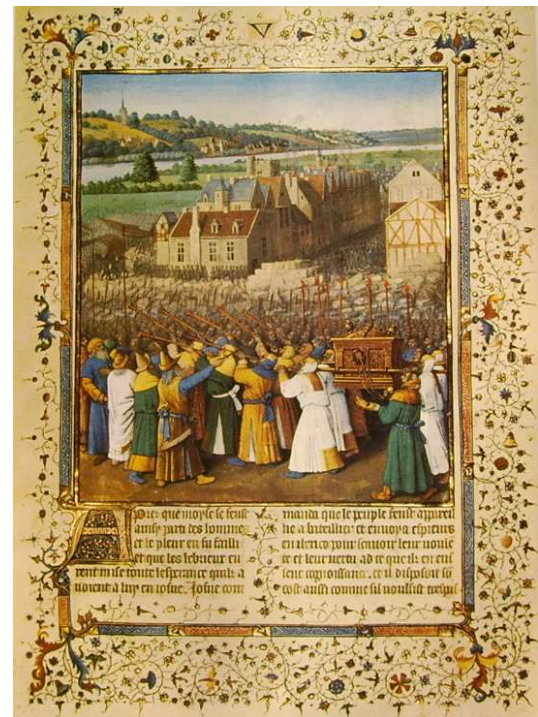 V
Apres que moyse se feust
ainsy parti des hommes
et le pleur en fu failli
et que les hebrieux eu
rent mise toute lesperance quilz a
uoient a luy en iosue. Iosue com
manda que le peuple feust apparei
lie a bataillier et enuoya espieurs
en iherico pour leur voule
te et leur vertu ad ce que il en eu
sent cognoissance. et il disposoit si
tost aussi comme sil voulsist